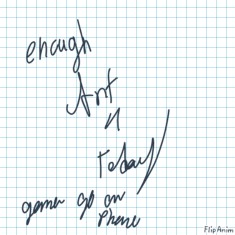 enough
Art
4
Today
gonna go on
Phone
FlipAnim